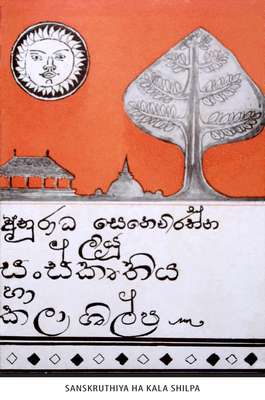 අනුරාධ සෙනෙවිරත්න
ලියූ
සංස්කෘතිය
හා
කලා ශිල්ප
SANSKRUTHIYA HA KALA SHILPA